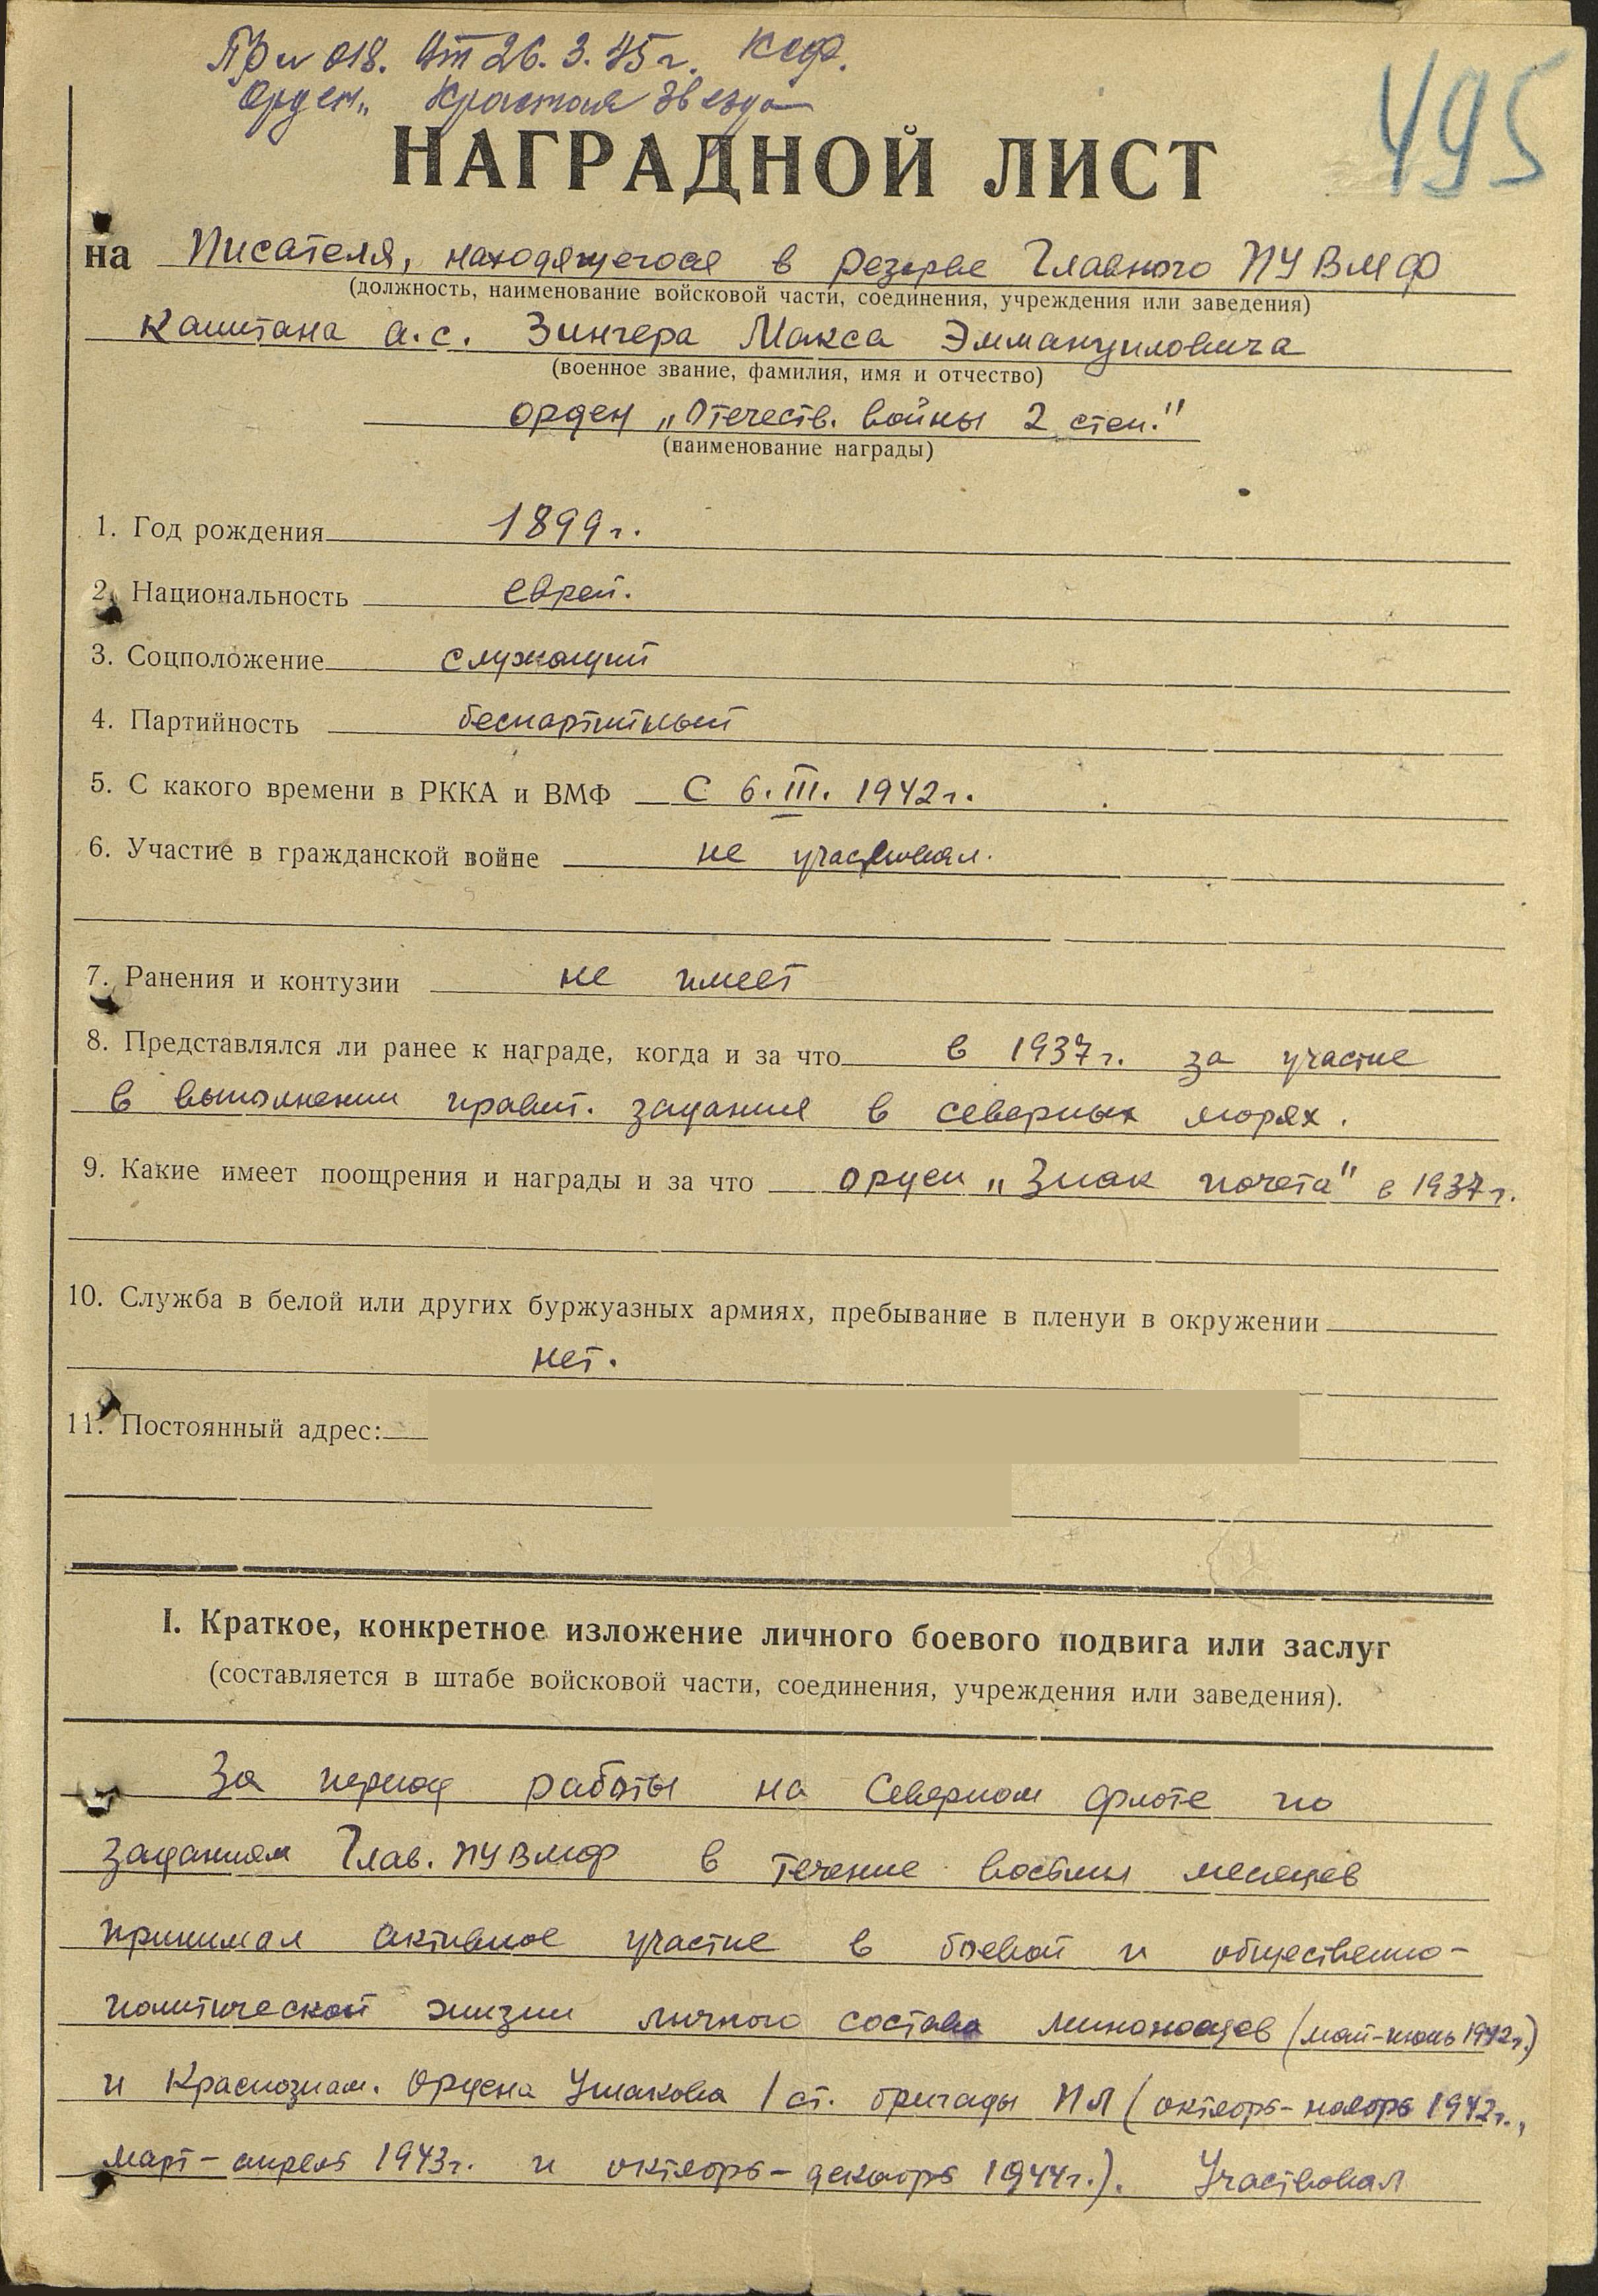 Пр № 018. От 26.3.45 г. КСФ.
Орден „Красная Звезда
495
НАГРАДНОЙ ЛИСТ
на Писателя, находящегося в резерве Главного ПУ ВМФ
(должность, наименование войсковой части, соединения, учреждения или заведения)
Капитана а.с. Зингера Макса Эммануиловича
(военное звание, фамилия, имя и отчество)
орден „Отечеств. войны 2 степ."
(наименование награды)
1. Год рождения 1899 г.
2. Национальность еврей.
3. Соцположение служащий
4. Партийность беспартийный
5. С какого времени в РККА и ВМФ С 6.III.1942 г.
6. Участие в гражданской войне не участвовал.
7. Ранения и контузии не имеет
8. Представлялся ли ранее к награде, когда и за что в 1937 г. за участие
в выполнении правит. задания в северных морях.
9. Какие имеет поощрения и награды и за что орден „Знак почета" в 1937 г.
10. Служба в белой или других буржуазных армиях, пребывание в плену и в окружении
нет.
11. Постоянный адрес:
I. Краткое, конкретное изложение личного боевого подвига или заслуг
(составляется в штабе войсковой части, соединения, учреждения или заведения).
За период работы на Северном флоте по
заданиям Глав. ПУ ВМФ в течение восьми месяцев
принимал активное участие в боевой и общественно-
политической жизни личного состава миноносцев (май-июнь 1942 г.)
и Краснознам. Ордена Ушакова 1 ст. бригады ПЛ (октябрь-ноябрь 1942 г.,
март-апрель 1943 г. и октябрь-декабрь 1944 г.). Участвовал